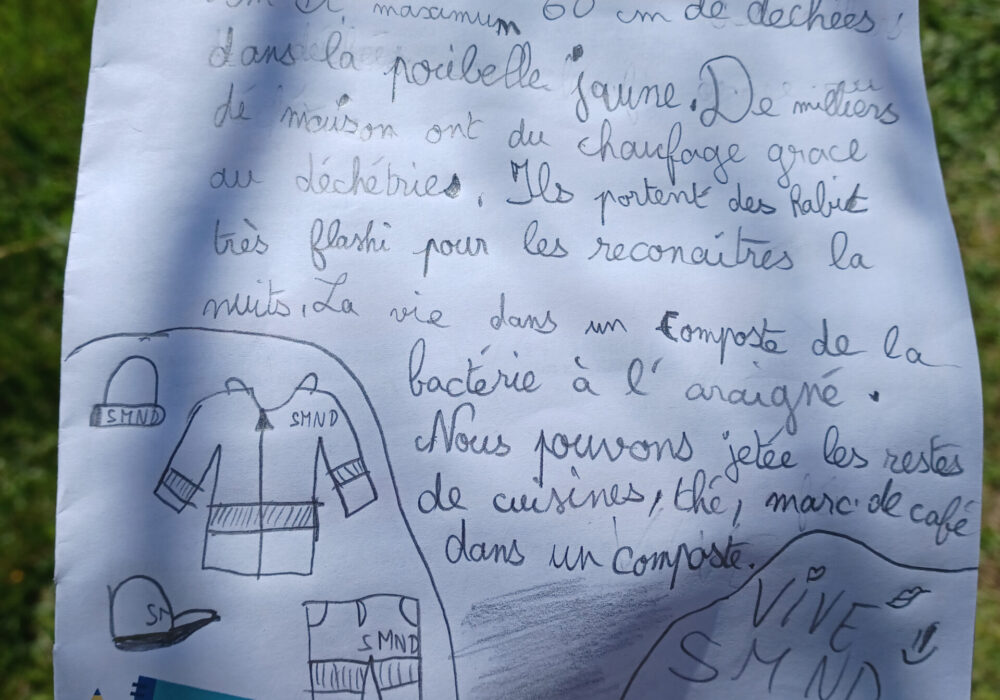 maximum 60 cm de dechées
dans la poubelle jaune. De milliers
de maison ont du chaufage grace
au déchétries. Ils portent des habit
très flashi pour les reconaîtres la
nuits. La vie dans un composte de la
bactérie à l'araigné.
Nous pouvons jetée les restes
de cuisines, thé, marc de café
dans un composte.
SMND
SMND
SM
SMND
VIVE
SMND